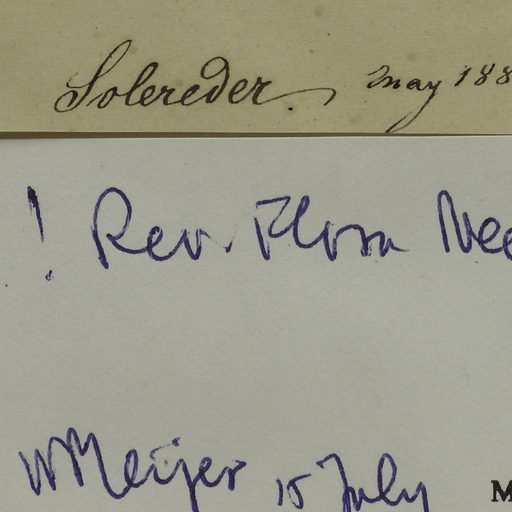 Solereder. May 188
! Rev. Flora Nee
W Meijer 15 July M